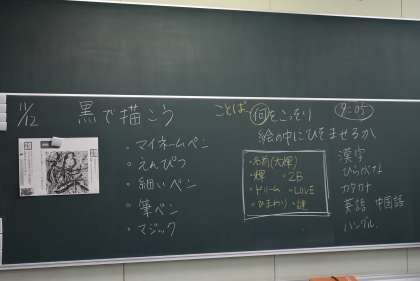 11/12
黒で描こう
・マイネームペン
・えんぴつ
・細いペン
・筆ペン
・マジック
ことば
何をこっそり
絵の中にひそませるか
9:05
・名前(大輝)
・輝 ・2B
・ドリーム ・LOVE
・ひまわり ・謎
漢字
ひらがな
カタカナ
英語 中国語
ハングル